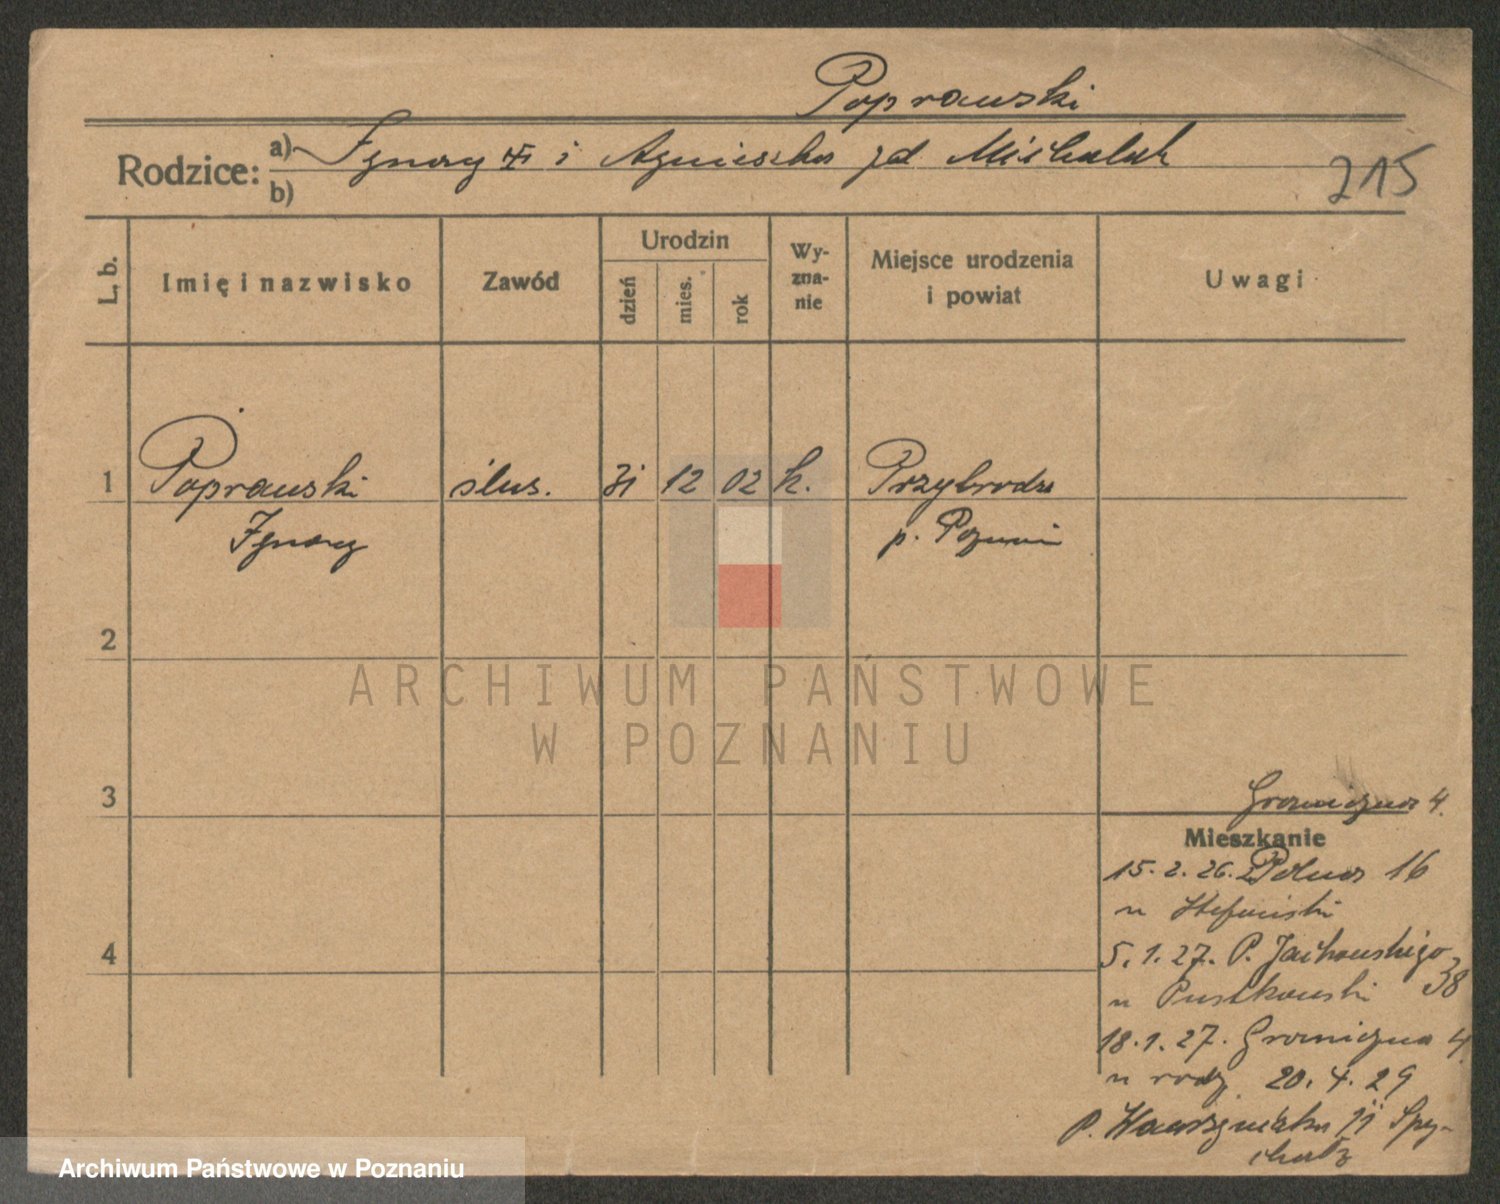 Poprawski
Rodzice: a) Ignacy i Agnieszka zd Michalak
b)
215
L. b.
Imię i nazwisko
Zawód
Urodzin
dzień
mies.
rok
Wy-
zna-
nie
Miejsce urodzenia
i powiat
Uwagi
1
Poprawski
ślus.
31
12
02
k.
Przybroda
Ignacy
p. Poznań
2
3
4
Graniczna 4.
Mieszkanie
15.2.26. Polna 16
u Stefański
5.1.27. P. Jackowskiego
38
u Pustkowski
18.1.27. Graniczna 4
u rodz. 20.4.29
P. Wawrzyniaka
ARCHIWUM PAŃSTWOWE
W POZNANIU
Archiwum Państwowe w Poznaniu